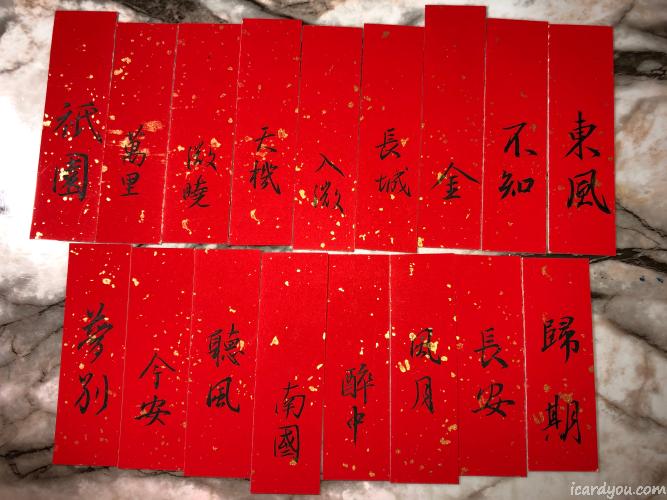 東風
不知
金
長城
入微
天機
微曉
萬里
祇園
歸期
長安
風月
醉中
南國
聽風
今安
夢別
icardyou.com